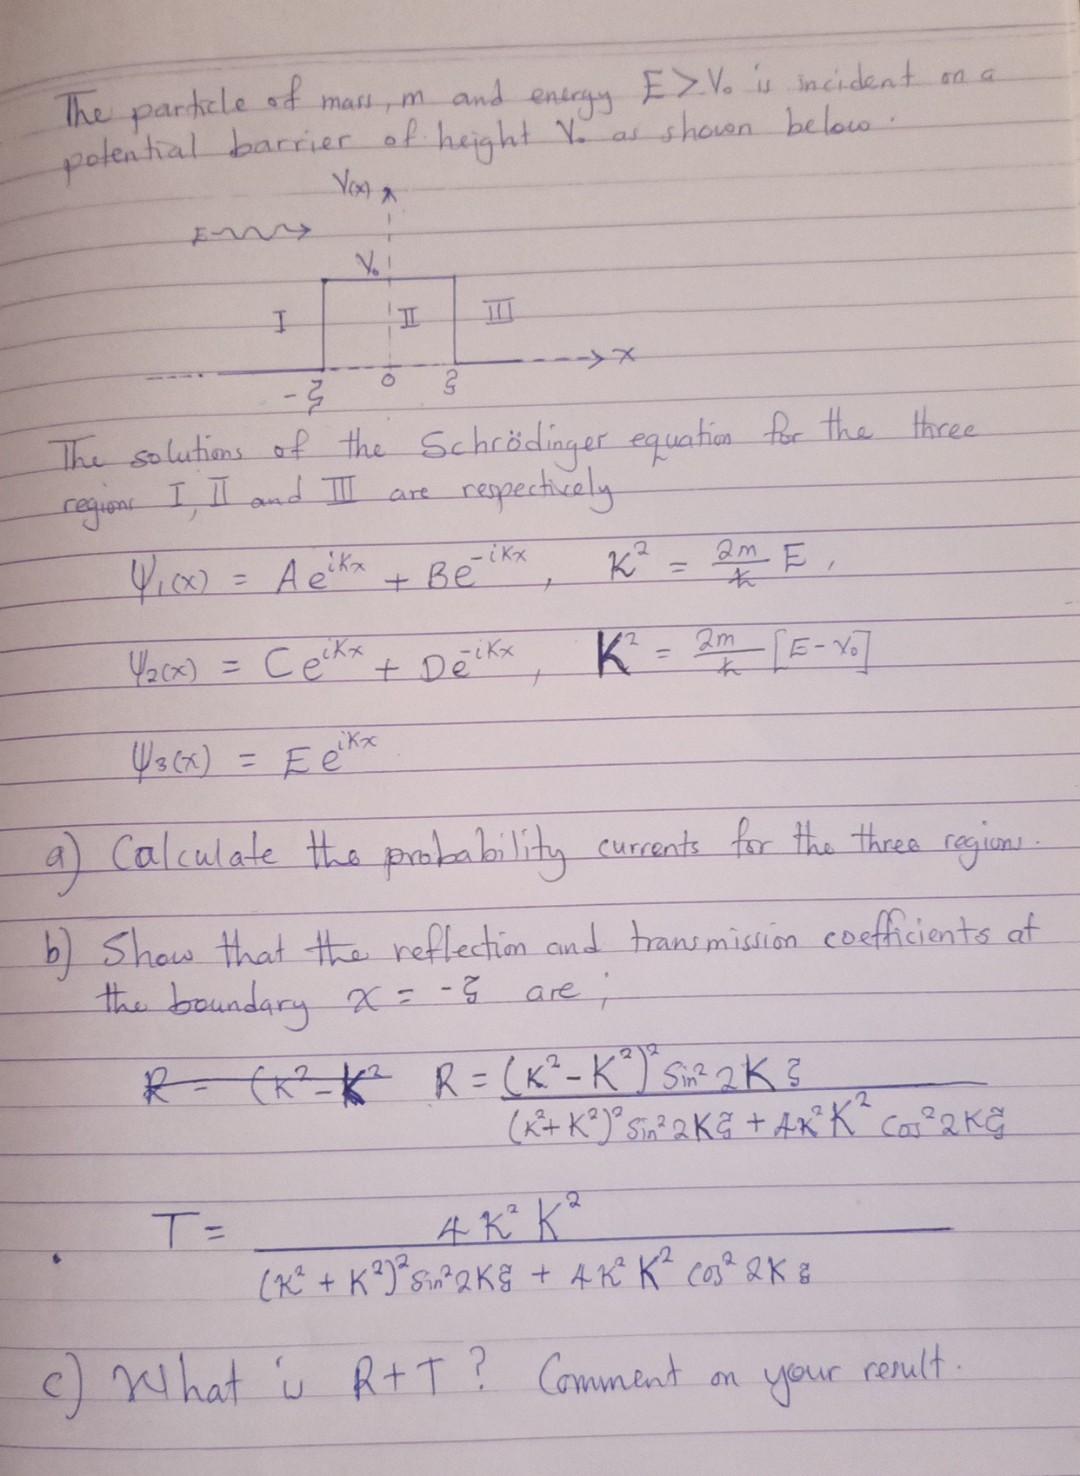 The particle of mass, m and energy E>V₀ is incident on a
potential barrier of height V₀ as shown below.
V(x)
E
V₀
I II III
x
-ξ 0 ξ
The solutions of the Schrödinger equation for the three
regions I, II and III are respectively
Ψ₁(x) = Ae^{ikx} + Be^{-ikx}, k² = 2m/ħ E,
Ψ₂(x) = Ce^{iKx} + De^{-iKx}, K² = 2m/ħ [E-V₀]
Ψ₃(x) = Ee^{ikx}
a) Calculate the probability currents for the three regions.
b) Show that the reflection and transmission coefficients at
the boundary x = -ξ are;
R = (k²-K² R = (k²-K²)² Sin² 2Kξ
(k²+K²)² Sin² 2Kξ + 4k²K² Cos² 2Kξ
T = 4k²K²
(k²+K²)² Sin² 2Kξ + 4k²K² Cos² 2Kξ
c) What is R+T? Comment on your result.